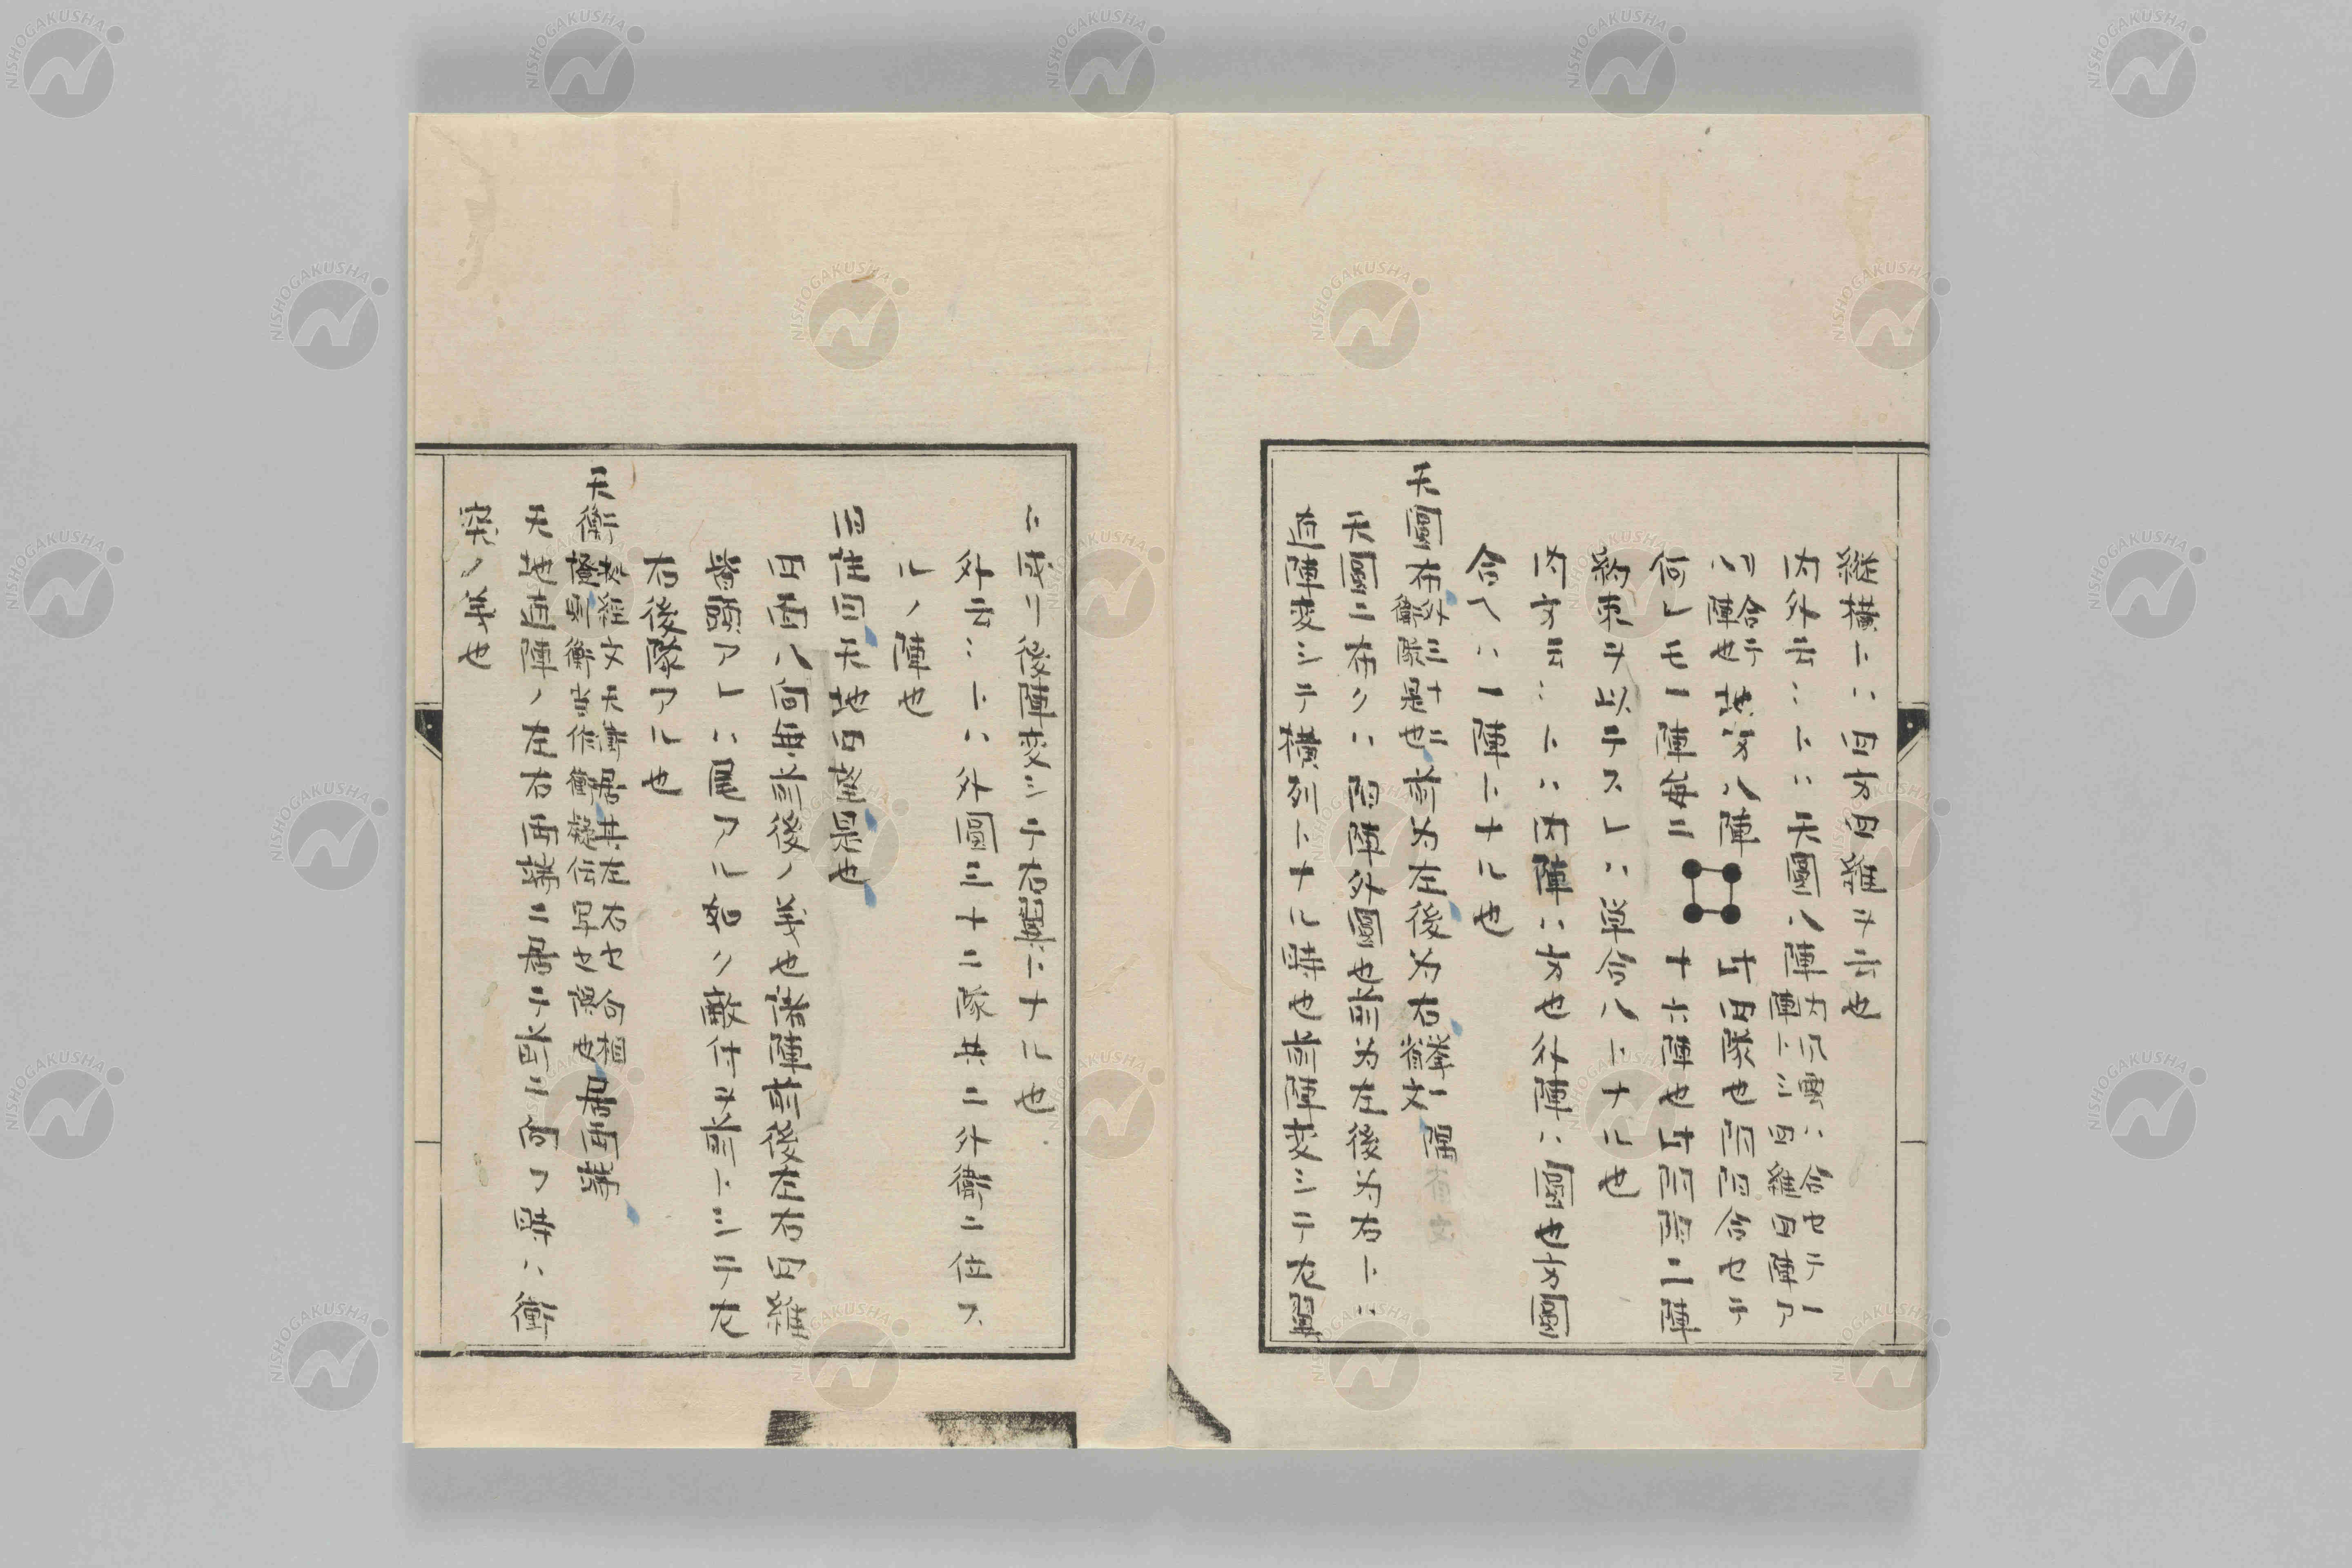 縦横トハ四方四維ヲ云也
内外云〻トハ天圓八陣内風雲ハ合セテ一陣トシ四維四陣ア
ハ合テ八陣也地方八陣此四隊也陰陽合セテ
何レモ一陣毎二十六陣也此陰陽二陣
約束ヲ以テスレハ単合八トナル也
内方云〻トハ内陣ハ方也外陣ハ圓也方圓
合ヘハ一陣トナル也
天圓布外三十二衝隊是也前为左後为右挙一省文隅
天圓二布クハ陽陣外圓也前为左後为右トハ
直陣変シテ横列トナル時也前陣変シテ左翼
ト成リ後陣変シテ右翼トナル也
外云〻トハ外圓三十二隊共二外衛二位ス
ルノ陣也
四注曰天地四望是也
四面八向無前後ノ義也諸陣前後左右四維
皆頭アレハ尾アル如ク敵付ヲ前トシテ左
右後隊アル也
天衝経文天衝居其左右也向相衝当作衝疑伝写之誤也居両端
天地直陣ノ左右両端二居テ前二向フ時ハ衝
突ノ義也
NISHOGAKUSHA